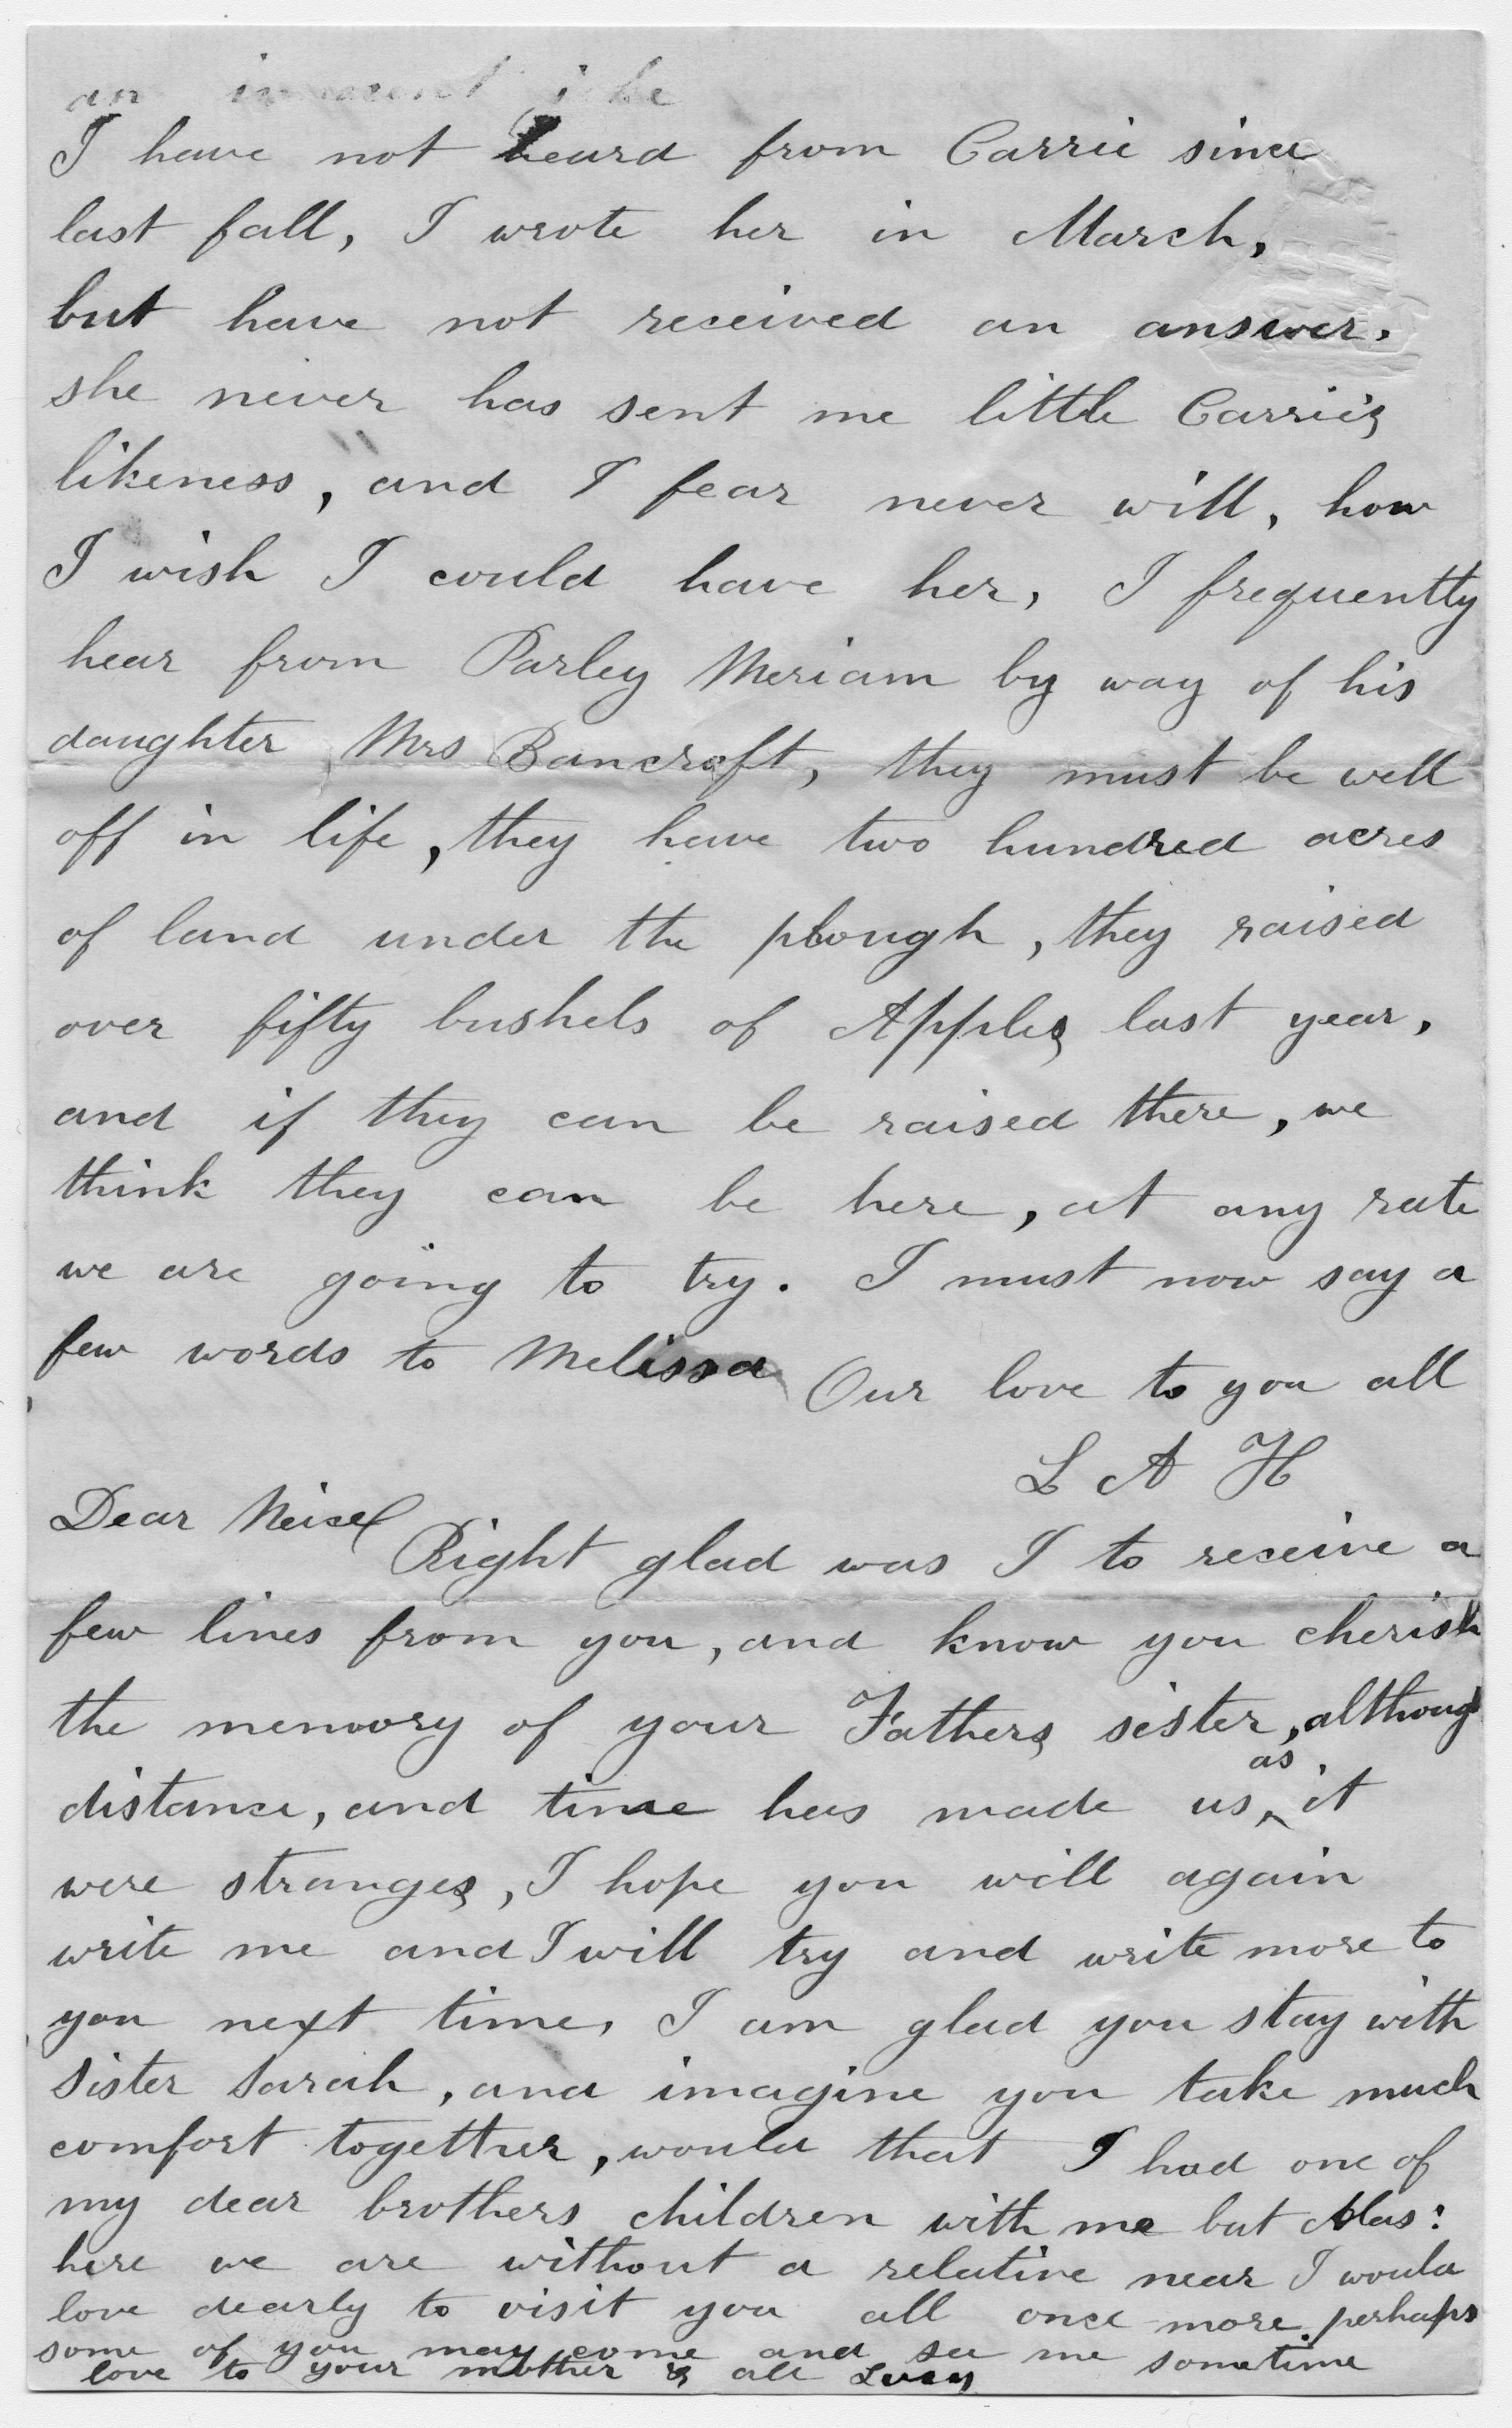 an innocent joke
I have not heard from Carrie since
last fall, I wrote her in March,
but have not received an answer.
she never has sent me little Carries
likeness, and I fear never will, how
I wish I could have her, I frequently
hear from Parley Meriam by way of his
daughter Mrs Bancroft, they must be well
off in life, they have two hundred acres
of land under the plough, they raised
over fifty bushels of Apples last year,
and if they can be raised there, we
think they can be here, at any rate
we are going to try. I must now say a
few words to Melissa Our love to you all
L A H
Dear Neice Right glad was I to receive a
few lines from you, and know you cherish
the memory of your Fathers sister, although
distance, and time has made us, as it
were stranges, I hope you will again
write me and I will try and write more to
you next time, I am glad you stay with
Sister Sarah, and imagine you take much
comfort together, would that I had one of
my dear brothers children with me but Alas:
here we are without a relative near I would
love dearly to visit you all once more. perhaps
some of you may come and see me sometime
love to your mother & all Lucy